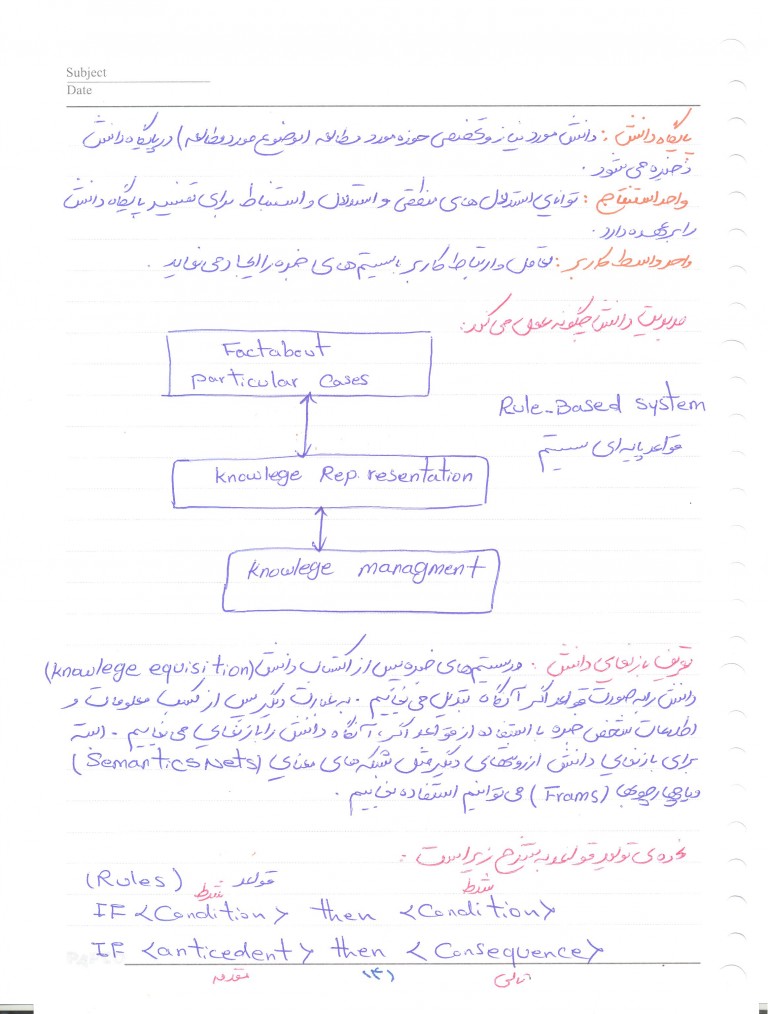 Subject
Date
پایگاه دانش : دانش مورد نیاز و تخصصی حوزه مورد مطالعه (موضوع مورد مطالعه) در پایگاه دانش
ذخیره می شود .
واحد استنتاج : توانای استدلال های منطقی و استدلال و استنباط برای تفسیر پایگاه دانش
را بر عهده دارد .
واحد واسط کاربر : تعامل و ارتباط کاربر با سیستم های خبره را ایجاد می نماید .
مدیریت دانش چگونه عمل می کند :
Fact about
particular cases
Rule-Based system
قواعد پایه ای سیستم
knowlege Rep.resentation
knowlege managment
تعریف بازنمای دانش : در سیستم های خبره پس از اکتساب دانش (knowlege equisition)
دانش را به صورت قواعد اگر آنگاه تبدیل می نمائیم . به عبارت دیگر پس از کسب معلومات و
اطلاعات شخص خبره با استفاده از قواعد اگر ، آنگاه دانش را بازنمای می نماییم . البته
برای بازنمای دانش از روشهای دیگر مثل شبکه های معنای (Semantics Nets)
و یا چهارچوبها (Frams) می توانیم استفاده نماییم .
نحوه ی تولید قواعد به شرح زیر است :
قواعد (Rules)
شرط شرط
IF <Condition> then <Condition>
IF <anticedent> then < Consequence>
مقدمه تالی
(۴)